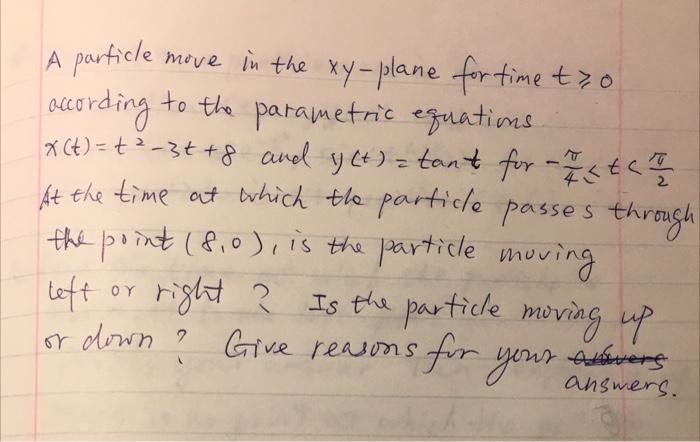 A particle move in the xy-plane for time t ≥ 0
according to the parametric equations
x(t) = t² - 3t + 8 and y(t) = tan t for -π/4 ≤ t < π/2
At the time at which the particle passes through
the point (8,0), is the particle moving
left or right ? Is the particle moving up
or down ? Give reasons for your
answers.